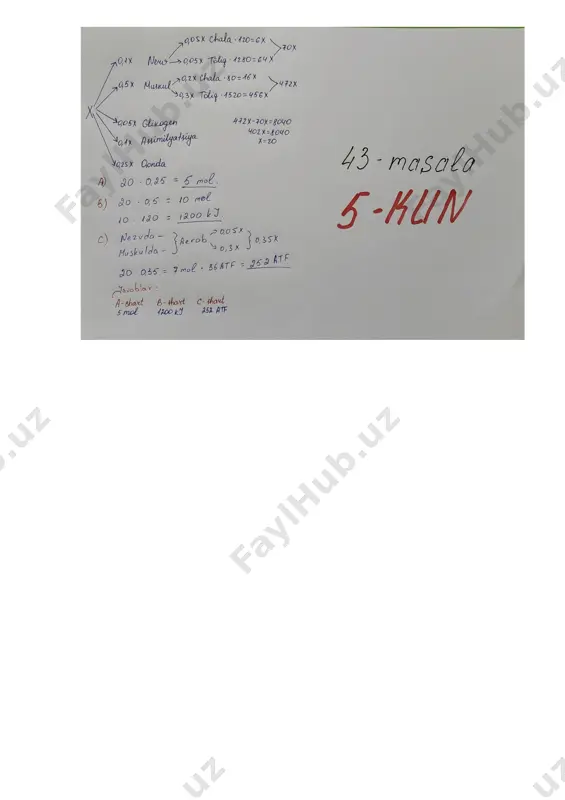 0,05x Chala · 120 = 6x
70x
0,1x Nerv
0,05x To'liq · 1280 = 64x
0,2x Chala · 80 = 16x
0,5x Muskul
472x
0,3x To'liq · 1520 = 456x
x
0,05x Glikogen
472x-70x=8040
0,1x Assimilyatsiya
402x=8040
x=20
0,25x Qonda
A) 20 · 0,25 = 5 mol.
B) 20 · 0,5 = 10 mol
10 · 120 = 1200 kJ
C) Nervda -
Muskulda -
Aerob
0,05x
0,3x
0,35x
20 · 0,35 = 7 mol · 36 ATF = 252 ATF
Javoblar:
A-shart B-shart C-shart
5 mol 1200 kJ 252 ATF
43-masala
5-KUN
FaylHub.uz
FaylHub.uz
FaylHub.uz
FaylHub.uz
.uz
uz
uz